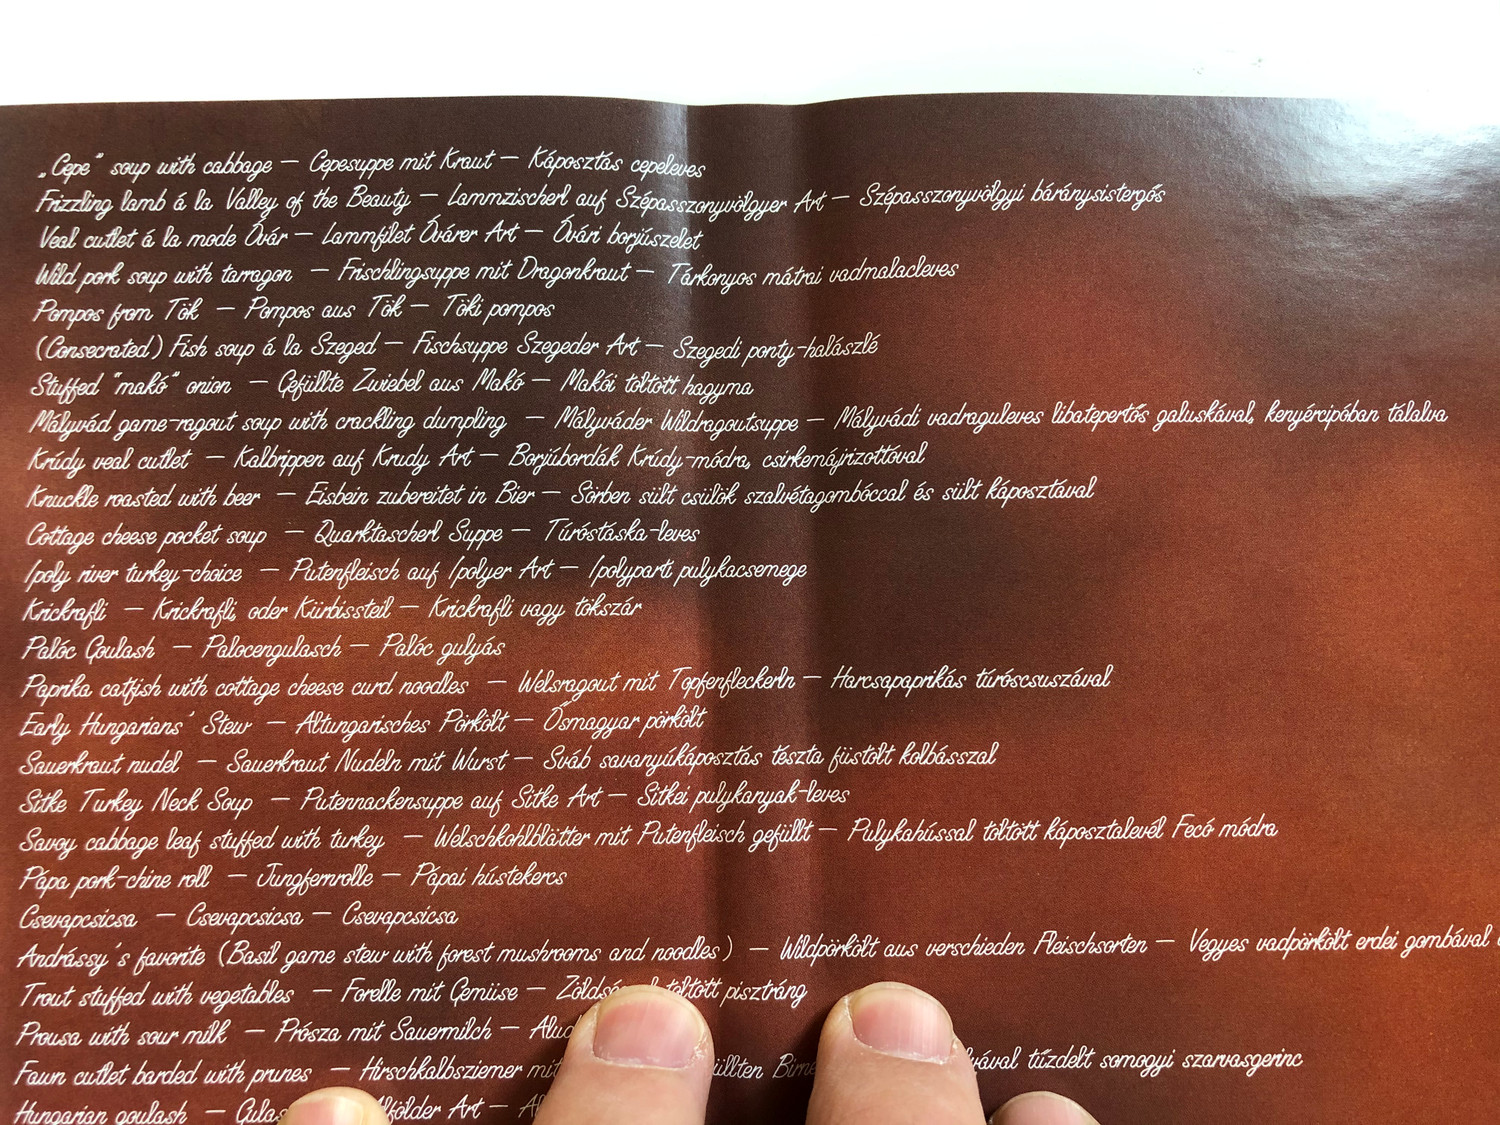 „Cepe” soup with cabbage – Cepesuppe mit Kraut – Káposztás cepeleves
Frizzling lamb á la Valley of the Beauty – Lammzischerl auf Szépasszonyvölgyer Art – Szépasszonyvölgyi báránysistergős
Veal cutlet á la mode Óvár – Lammfilet Óvárer Art – Óvári borjúszelet
Wild pork soup with tarragon – Frischlingsuppe mit Dragonkraut – Tárkonyos mátrai vadmalacleves
Pompos from Tök – Pompos aus Tök – Töki pompos
(Consecrated) Fish soup á la Szeged – Fischsuppe Szegeder Art – Szegedi ponty-halászlé
Stuffed "makó" onion – Gefüllte Zwiebel aus Makó – Makói töltött hagyma
Mályvád game-ragout soup with crackling dumpling – Mályváder Wildragoutsuppe – Mályvádi vadraguleves libatepertős galuskával, kenyércipóban tálalva
Krúdy veal cutlet – Kalbrippen auf Krudy Art – Borjúbordák Krúdy-módra, csirkemájrizottóval
Knuckle roasted with beer – Eisbein zubereitet in Bier – Sörben sült csülök szalvétagombóccal és sült káposztával
Cottage cheese pocket soup – Quarktascherl Suppe – Túróstáska-leves
Ipoly river turkey-choice – Putenfleisch auf Ipolyer Art – Ipolyparti pulykacsemege
Krickrafli – Krickrafli, oder Kürbissteil – Krickrafli vagy tökszár
Palóc Goulash – Palocengulasch – Palóc gulyás
Paprika catfish with cottage cheese curd noodles – Welsragout mit Topfenfleckerln – Harcsapaprikás túróscsuszával
Early Hungarians' Stew – Altungarisches Pörkölt – Ősmagyar pörkölt
Sauerkraut nudel – Sauerkraut Nudeln mit Wurst – Sváb savanyúkáposztás tészta füstölt kolbásszal
Sitke Turkey Neck Soup – Putennackensuppe auf Sitke Art – Sitkei pulykanyak-leves
Savoy cabbage leaf stuffed with turkey – Welschkohlblätter mit Putenfleisch gefüllt – Pulykahússal töltött káposztalevél Fecó módra
Pápa pork-chine roll – Jungfernrolle – Pápai hústekercs
Csevapcsicsa – Csevapcsicsa – Csevapcsicsa
Andrássy's favorite (Basil game stew with forest mushrooms and noodles) – Wildpörkölt aus verschieden Fleischsorten – Vegyes vadpörkölt erdei gombával
Trout stuffed with vegetables – Forelle mit Gemüse – töltött pisztráng
Prousa with sour milk – Prósza mit Sauermilch –
Fawn cutlet barded with prunes – Hirschkalbsziemer mit tűzdelt somogyi szarvasgerinc
Hungarian goulash – Alfölder Art –